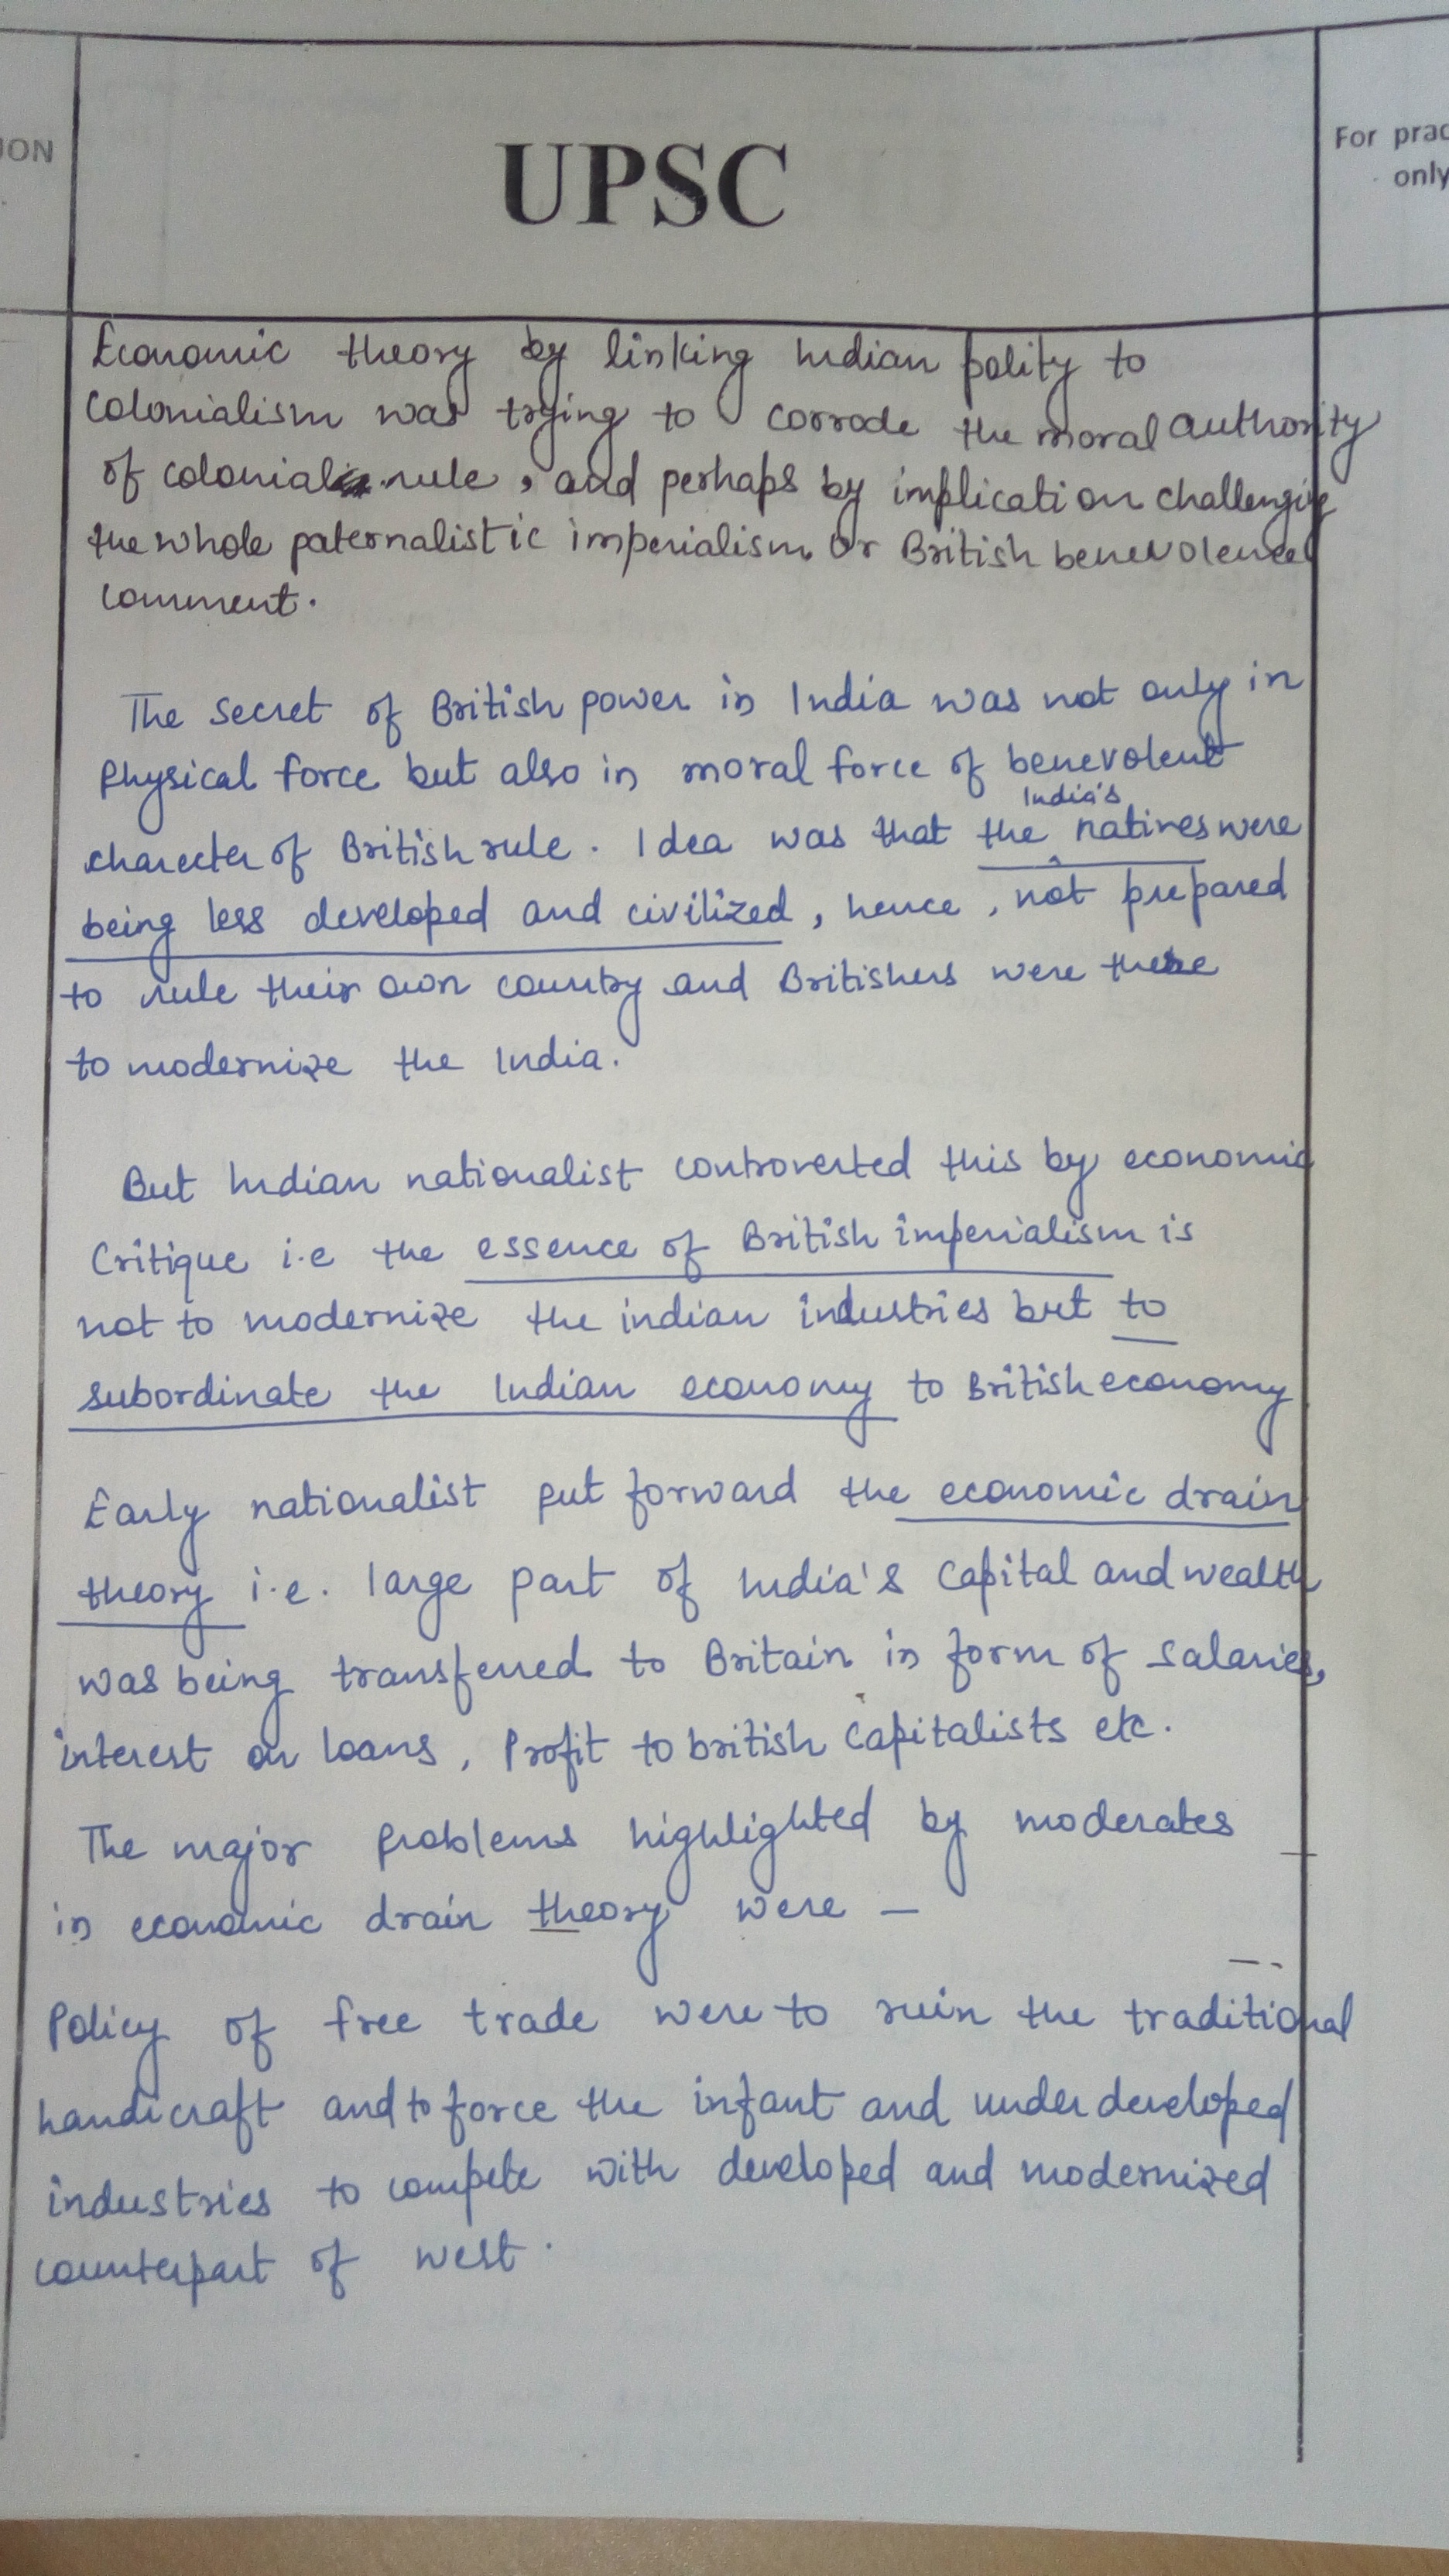 ION
UPSC
For prac
only
Economic theory by linking Indian polity to
colonialism was trying to corrode the moral authority
of colonial rule, and perhaps by implication challenging
the whole paternalistic imperialism or British benevolence
comment.
The secret of British power in India was not only in
physical force but also in moral force of benevolent
charecter of British rule. Idea was that the India's natives were
being less developed and civilized, hence, not prepared
to rule their own country and Britishers were there
to modernize the India.
But Indian nationalist controverted this by economic
Critique i.e the essence of British imperialism is
not to modernize the indian industries but to
subordinate the Indian economy to British economy
Early nationalist put forward the economic drain
theory i.e. large part of India's capital and wealth
was being transferred to Britain in form of salaries,
interest on loans, Profit to british capitalists etc.
The major problems highlighted by moderates
in economic drain theory were -
Policy of free trade were to ruin the traditional
handicraft and to force the infant and under developed
industries to compete with developed and modernized
counterpart of west.